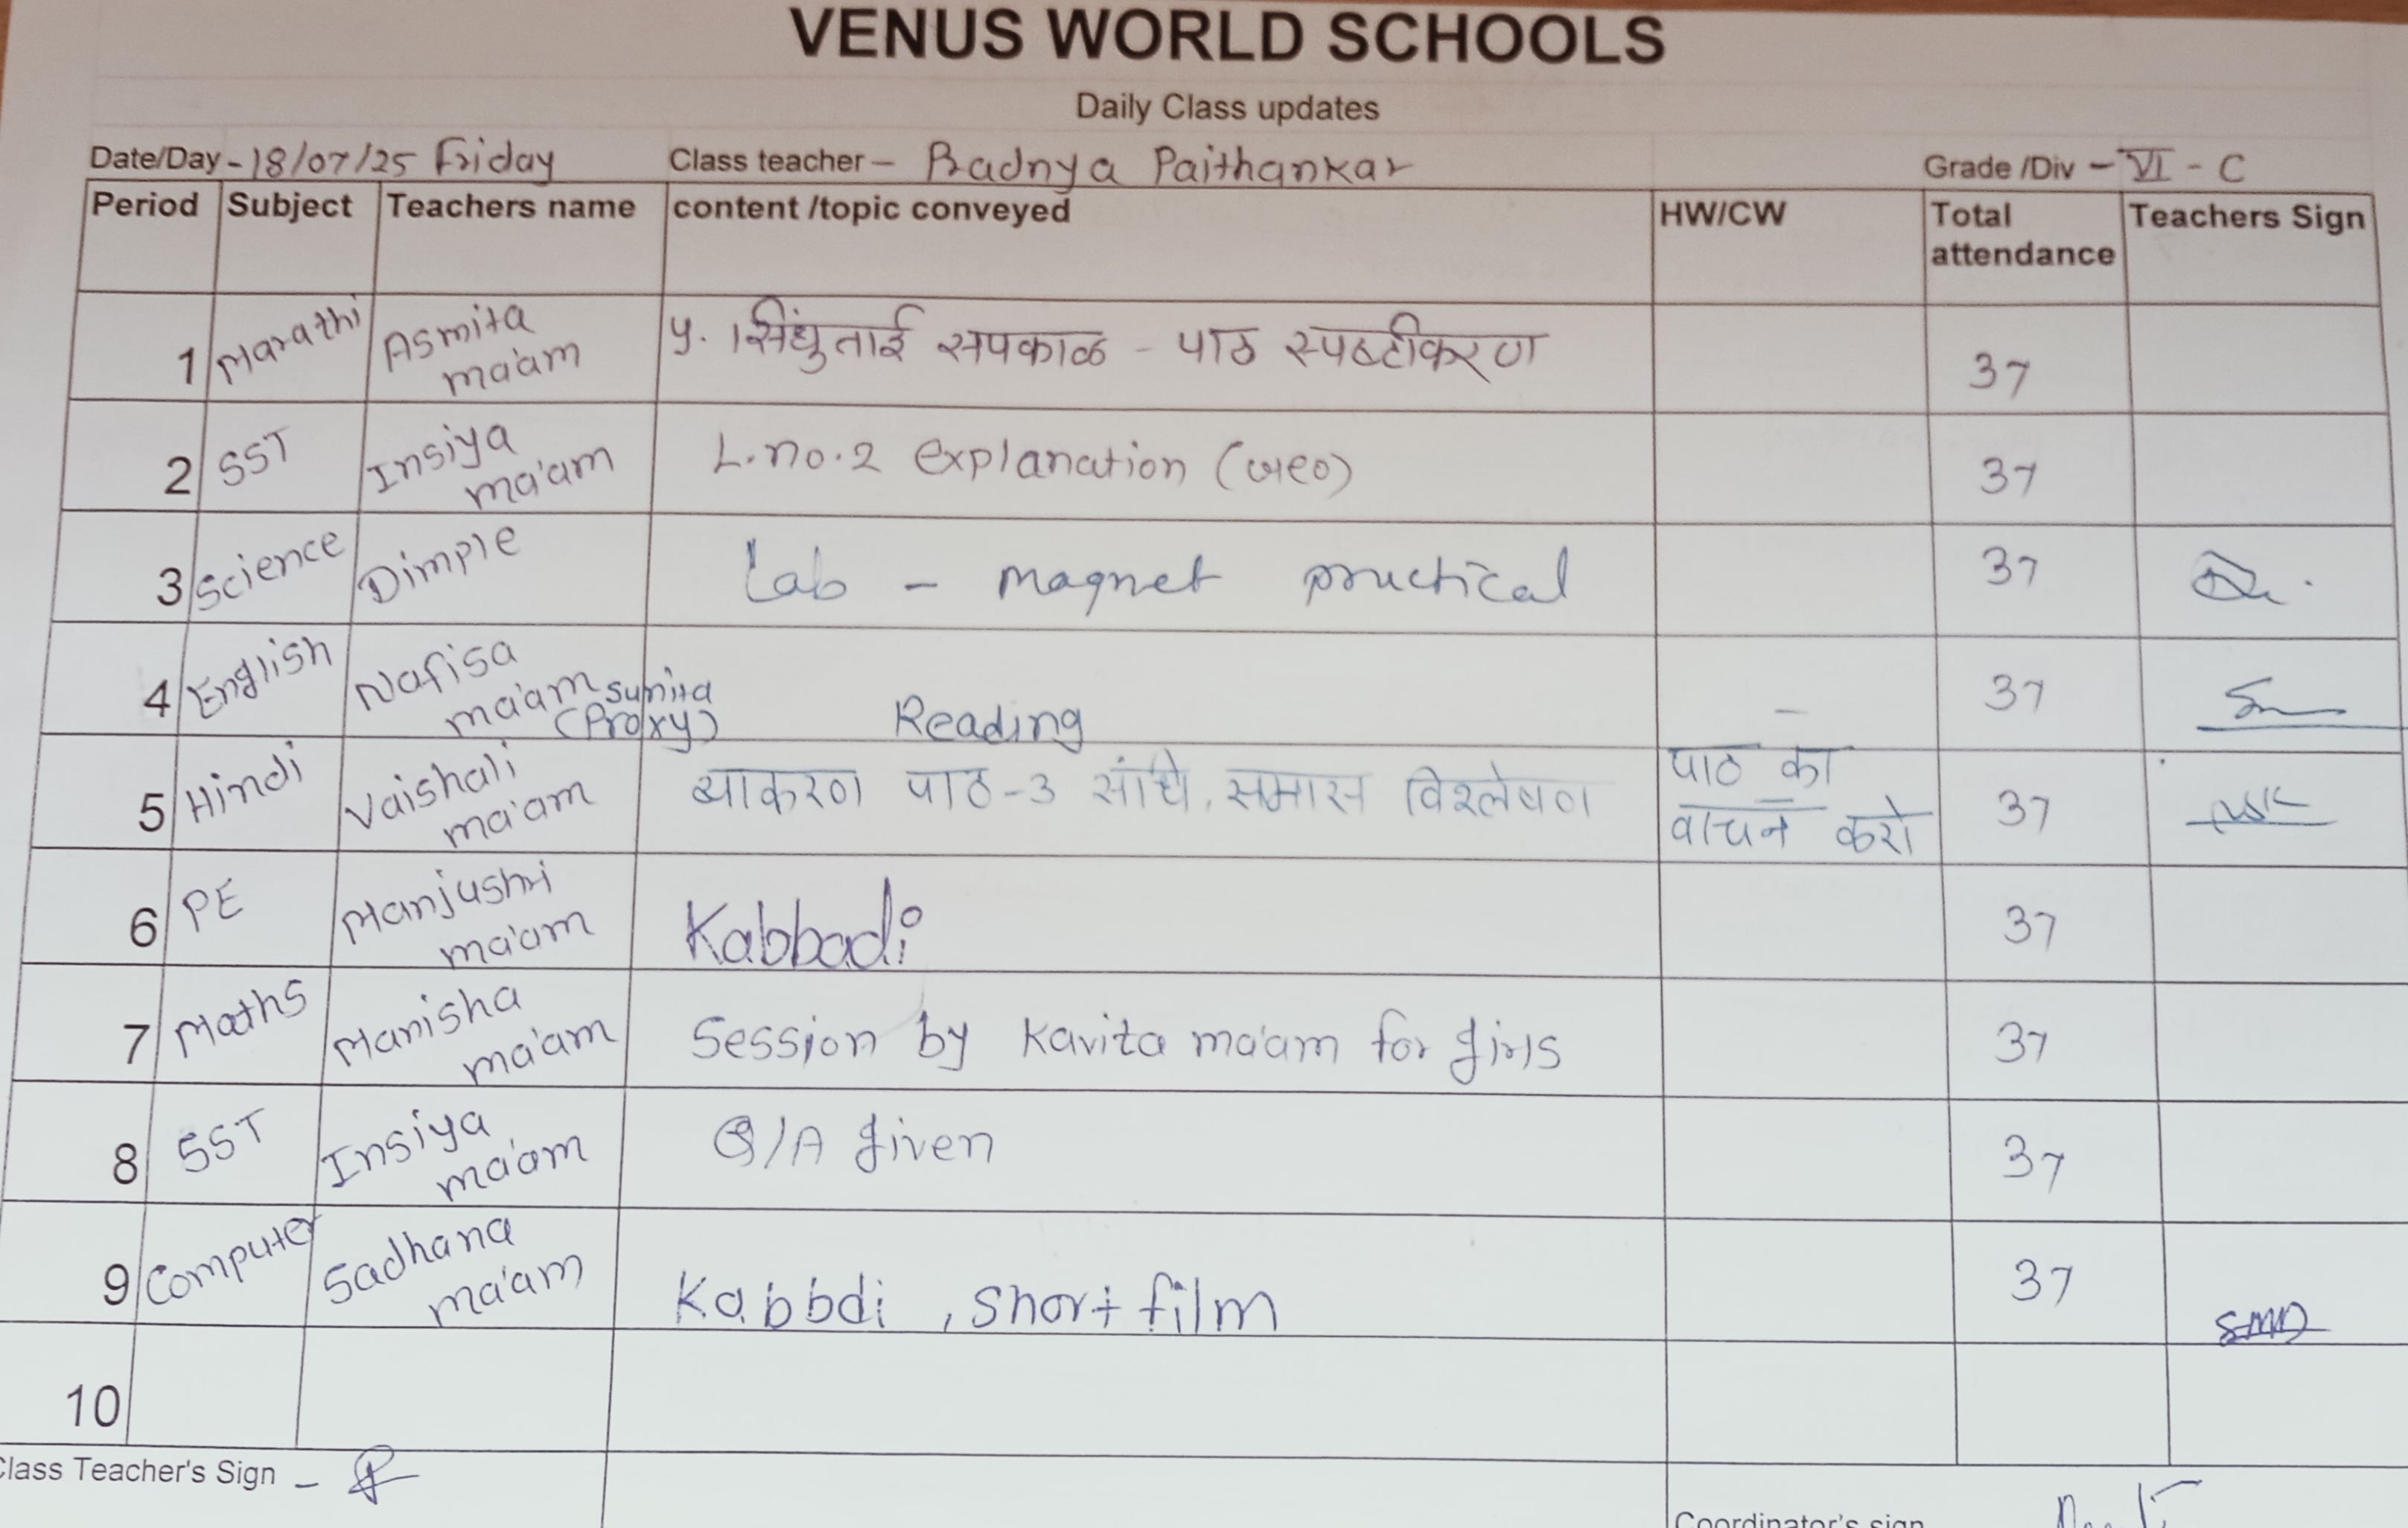 VENUS WORLD SCHOOLS
Daily Class updates
Date/Day - 18/07/25 Friday Class teacher - Pradnya Paithankar Grade /Div - VI - C
Period Subject Teachers name content /topic conveyed HW/CW Total attendance Teachers Sign
1 Marathi Asmita ma'am ५. सिंधुताई सपकाळ - पाठ स्पष्टीकरण 37
2 SST Insiya ma'am L.no.2 explanation (Geo) 37
3 Science Dimple Lab - magnet practical 37
4 English Nafisa ma'am Sunita (Proxy) Reading - 37
5 Hindi Vaishali ma'am व्याकरण पाठ-3 संधि, समास विश्लेषण पाठ का वाचन करो 37
6 PE Manjushri ma'am Kabbadi 37
7 Maths Manisha ma'am Session by Kavita ma'am for girls 37
8 SST Insiya ma'am Q/A given 37
9 Computer Sadhana ma'am Kabbdi , short film 37 SMD
10
Class Teacher's Sign -
Coordinator's sign